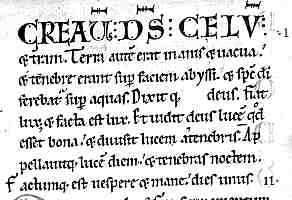 CREAU: DS: CELU:
& trram. Terra aute erat inanis & uacua.
& tenebre erant sup faciem abyssi. & sps di
ferebat sup aquas. Dixit q deus. fiat
lux, & facta est lux. Et uidit deus luce qd
esset bona. & diuisit lucem a tenebris. Ap
pellauitq luce diem. & tenebras noctem.
Factumq est uespere & mane, dies unus. II.